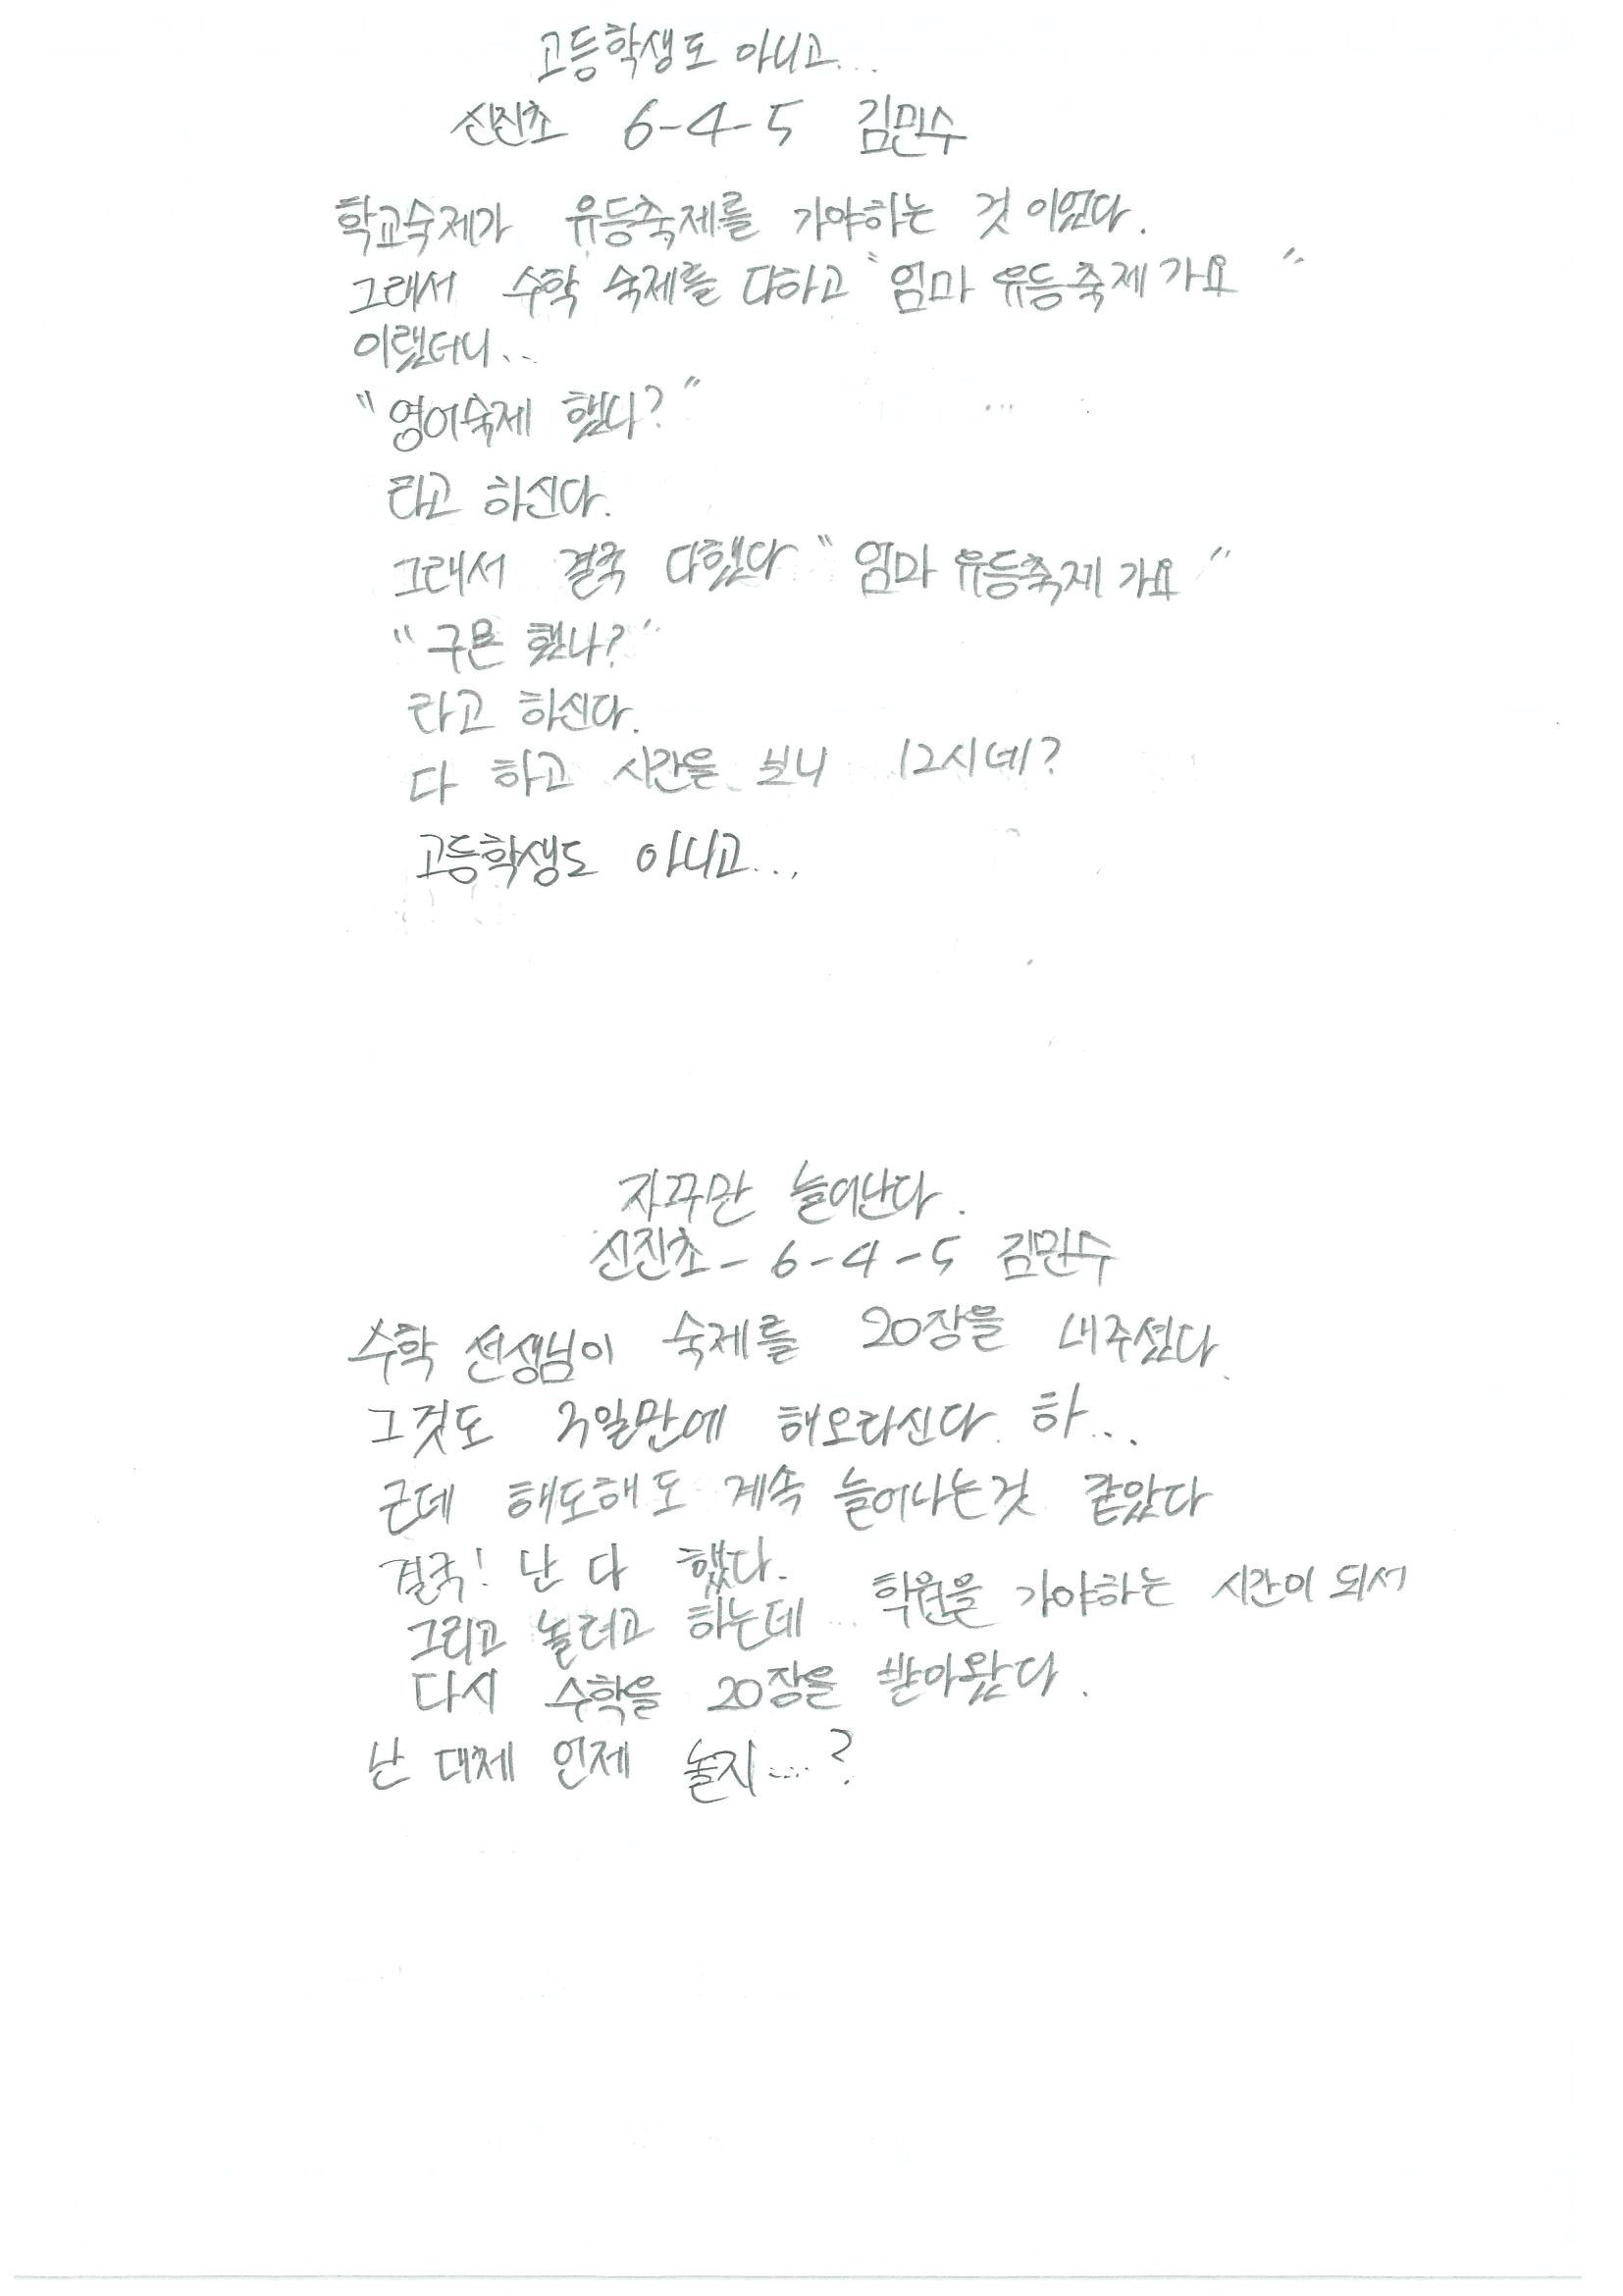 고등학생도 아니고...
신진초 6-4-5 김민수
학교숙제가 유등축제를 가야하는 것 이었다.
그래서 수학 숙제를 다하고 "엄마 유등축제 가요"
이랬더니...
"영어숙제 했나?"
라고 하신다.
그래서 결국 다했다 "엄마 유등축제 가요"
"구몬 했나?"
라고 하신다.
다 하고 시간을 보니 12시네?
고등학생도 아니고...
자꾸만 늘어난다.
신진초-6-4-5 김민수
수학 선생님이 숙제를 20장을 내주셨다.
그것도 2일만에 해오라신다. 하...
근데 해도해도 계속 늘어나는것 같았다
결국! 난 다 했다.
그리고 놀려고 하는데... 학원을 가야하는 시간이 되서
다시 수학을 20장을 받아왔다.
난 대체 언제 놀지....?